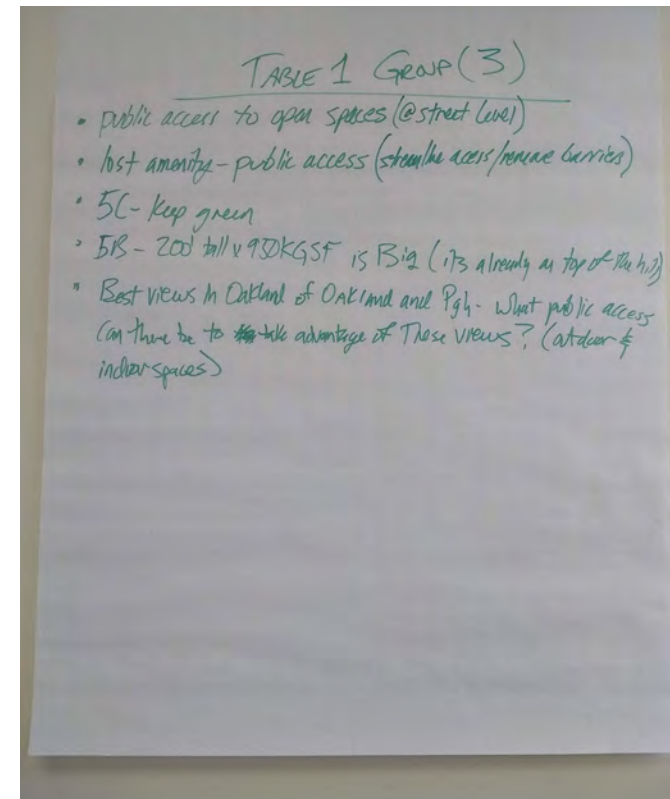 TABLE 1 GROUP (3)
• public access to open spaces (@ street level)
• lost amenity - public access (streamline access/remove barriers)
• 5C - Keep green
• 5B - 200' tall v 950KGSF is Big (its already on top of the hill)
• Best views in Oakland of OAKland and Pgh. What public access
can there be to take advantage of These views? (outdoor &
indoor spaces)